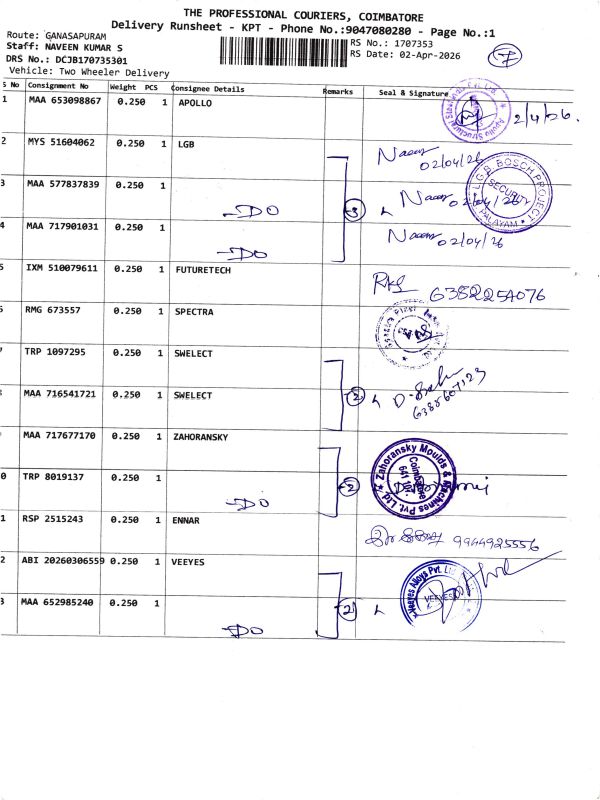 THE PROFESSIONAL COURIERS, COIMBATORE
Delivery Runsheet - KPT - Phone No.:9047080280 - Page No.:1
Route: GANASAPURAM
RS No.: 1707353
Staff: NAVEEN KUMAR S
RS Date: 02-Apr-2026
7
DRS No.: DCJB170735301
Vehicle: Two Wheeler Delivery
S No Consignment No Weight PCS Consignee Details Remarks Seal & Signature
1 MAA 653098867 0.250 1 APOLLO 2/4/26.
2 MYS 51604062 0.250 1 LGB 02/04/26
L.G.B BOSCH PROJECT SECURITY PALAYAM
3 MAA 577837839 0.250 1 -DO 3 02/04/26
4 MAA 717901031 0.250 1 -DO 02/04/26
5 IXM 510079611 0.250 1 FUTURETECH 6382254076
6 RMG 673557 0.250 1 SPECTRA
7 TRP 1097295 0.250 1 SWELECT
2
8 MAA 716541721 0.250 1 SWELECT 6385607123
MAA 717677170 0.250 1 ZAHORANSKY
Zahoransky Moulds & Machines Pvt. Ltd. Coimbatore 641 107.
2
0 TRP 8019137 0.250 1 -DO
1 RSP 2515243 0.250 1 ENNAR 9944925556
2 ABI 20260306559 0.250 1 VEEYES
Veeyes Alloys Pvt. Ltd. VEEYES
2
3 MAA 652985240 0.250 1 -DO